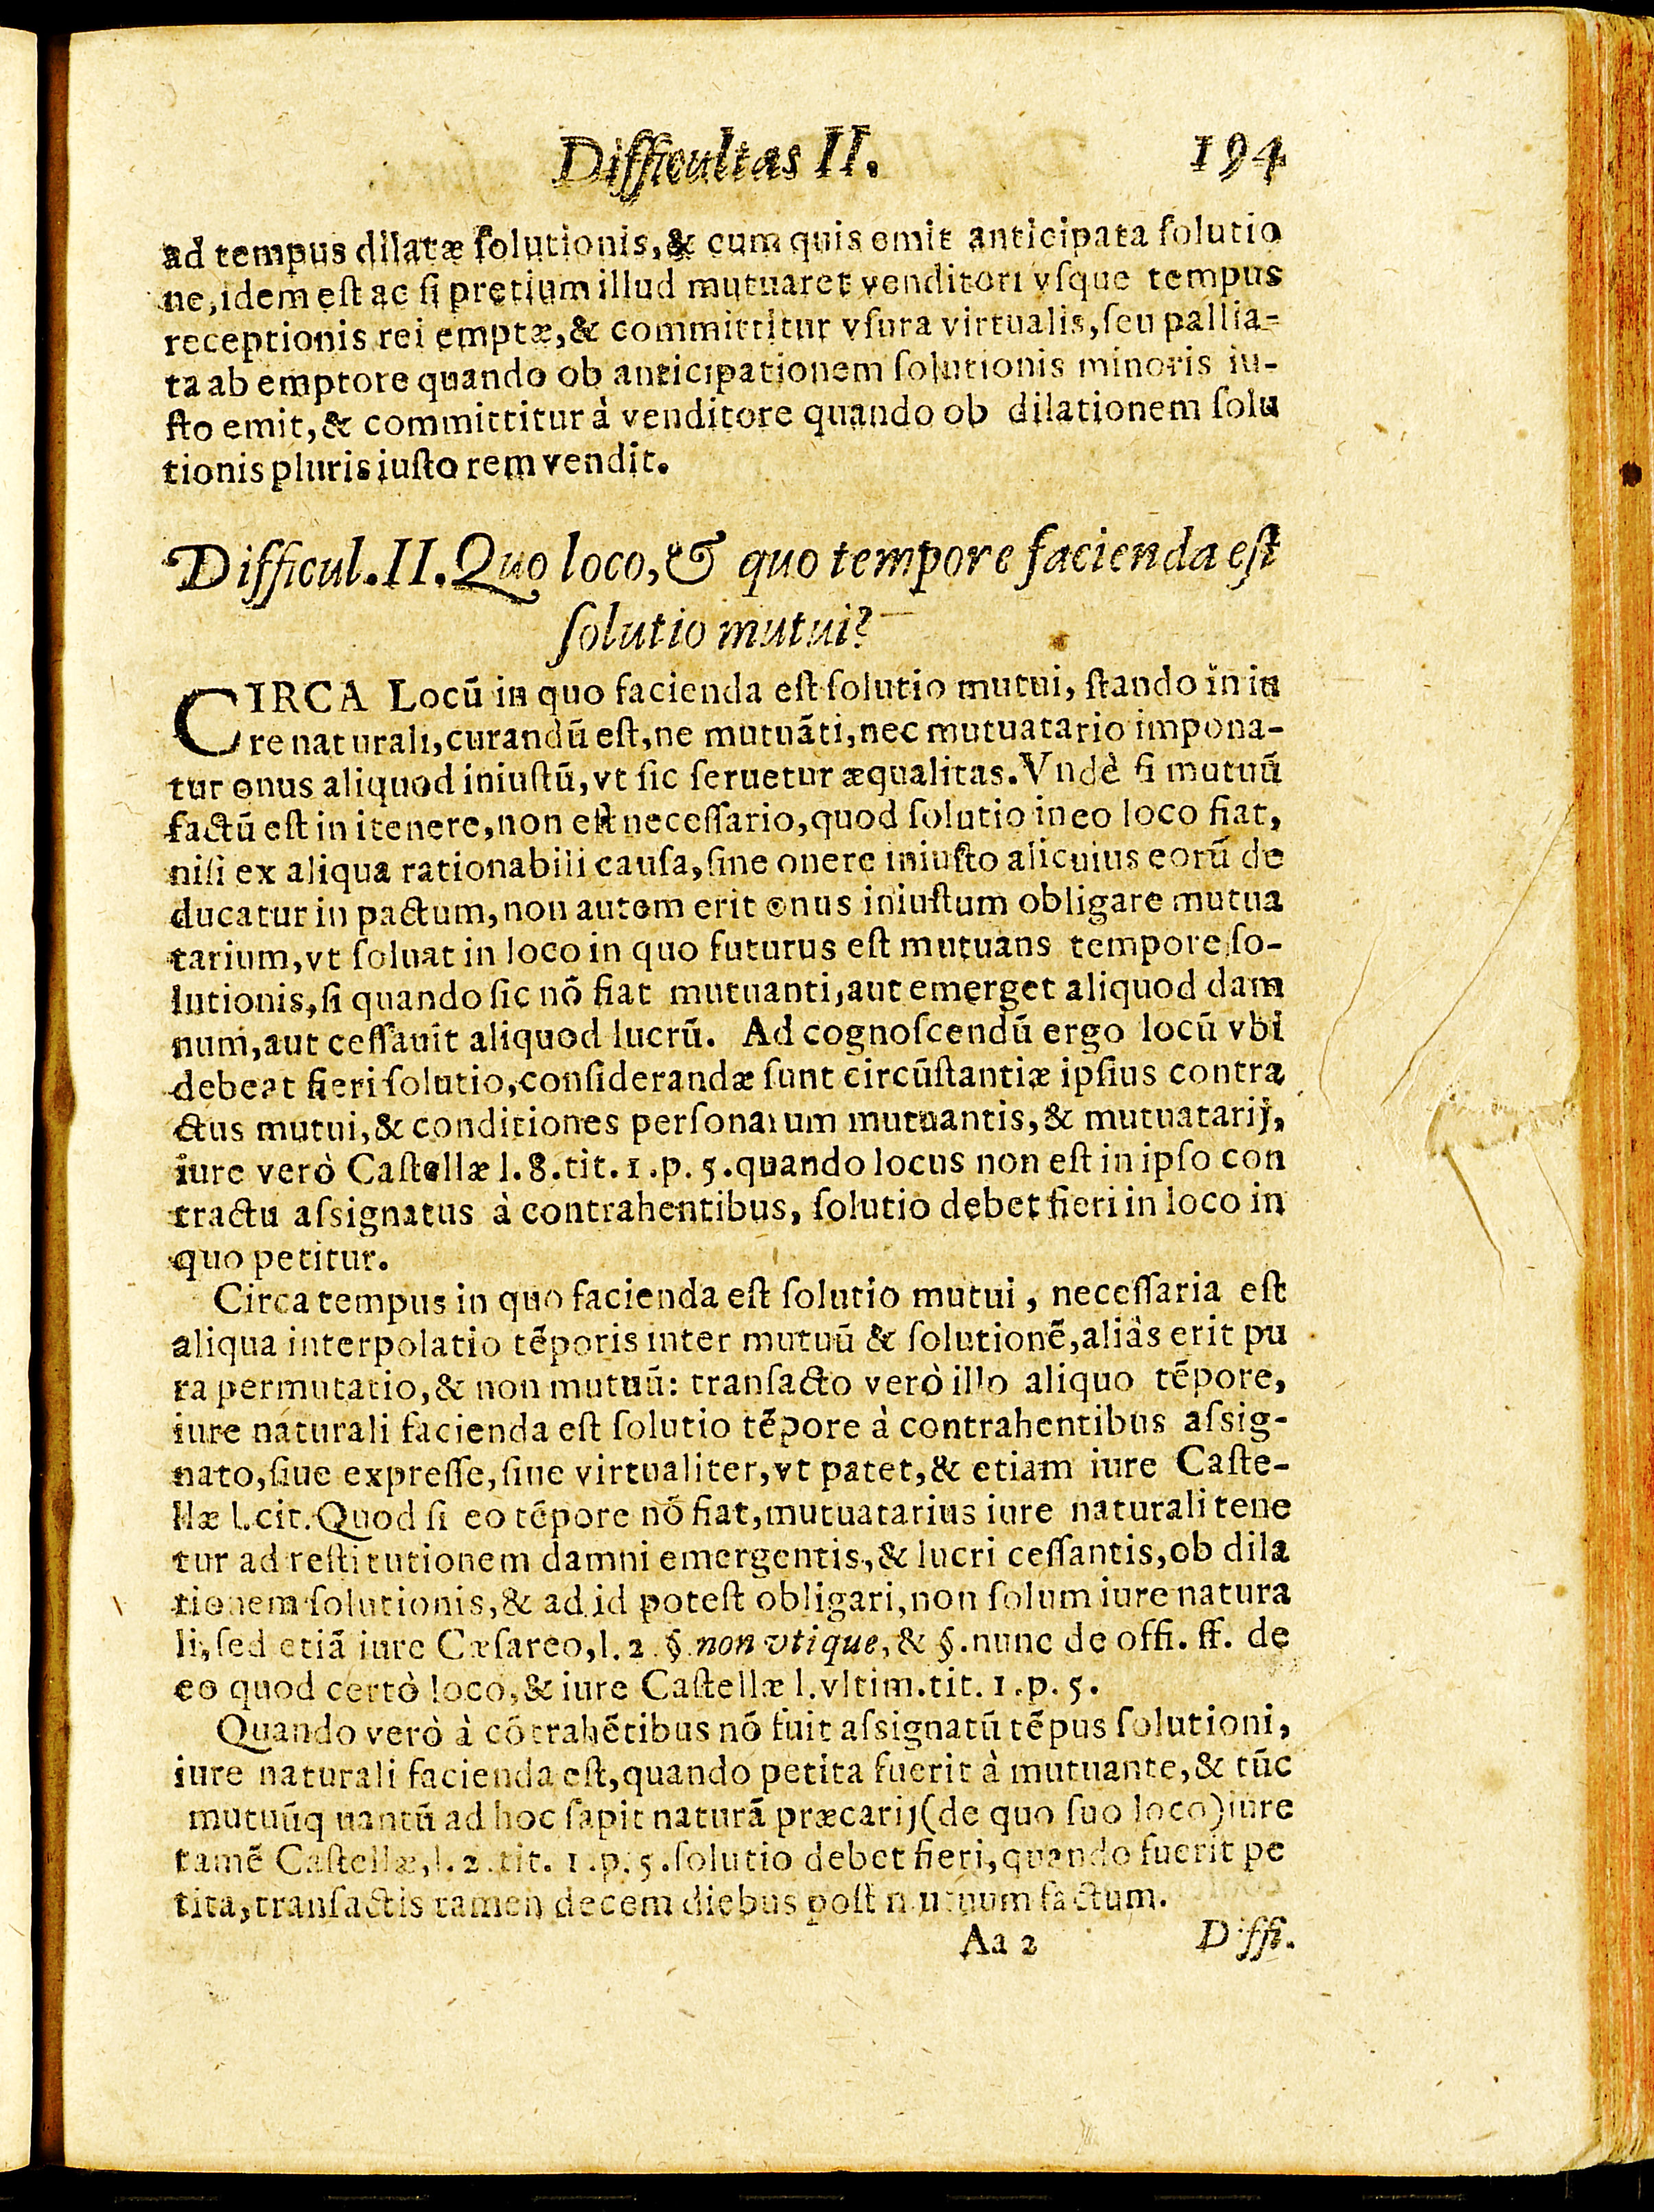 Difficultas II. 194
ad tempus dilatæ ſolutionis, & cum quis emit anticipata ſolutio
ne, idem eſt ac ſi pretium illud mutuaret venditori vſque tempus
receptionis rei emptæ, & committitur vſura virtualis, ſeu pallia-
ta ab emptore quando ob anticipationem ſolutionis minoris iu-
ſto emit, & committitur à venditore quando ob dilationem ſolu
tionis pluris iuſto rem vendit.
Difficul. II. Quo loco, & quo tempore facienda eſt
ſolutio mutui?
CIRCA Locũ in quo facienda eſt ſolutio mutui, ſtando in iu
re naturali, curandũ eſt, ne mutuãti, nec mutuatario impona-
tur onus aliquod iniuſtũ, vt ſic ſeruetur æqualitas. Vndè ſi mutuũ
factũ eſt in itenere, non eſt neceſſario, quod ſolutio in eo loco fiat,
niſi ex aliqua rationabili cauſa, ſine onere iniuſto alicuius eorũ de
ducatur in pactum, non autem erit onus iniuſtum obligare mutua
tarium, vt ſoluat in loco in quo futurus eſt mutuans tempore ſo-
lutionis, ſi quando ſic nõ fiat mutuanti, aut emerget aliquod dam
num, aut ceſſauit aliquod lucrũ. Ad cognoſcendũ ergo locũ vbi
debeat fieri ſolutio, conſiderandæ ſunt circũſtantiæ ipſius contra
ctus mutui, & conditiones perſonarum mutuantis, & mutuatarij,
iure verò Caſtellæ l. 8. tit. 1. p. 5. quando locus non eſt in ipſo con
tractu aſsignatus à contrahentibus, ſolutio debet fieri in loco in
quo petitur.
Circa tempus in quo facienda eſt ſolutio mutui, neceſſaria eſt
aliqua interpolatio tẽporis inter mutuũ & ſolutionẽ, aliàs erit pu
ra permutatio, & non mutuũ: tranſacto verò illo aliquo tẽpore,
iure naturali facienda eſt ſolutio tẽpore à contrahentibus aſsig-
nato, ſiue expreſſe, ſiue virtualiter, vt patet, & etiam iure Caſte-
llæ l. cit. Quod ſi eo tẽpore nõ fiat, mutuatarius iure naturali tene
tur ad reſtitutionem damni emergentis, & lucri ceſſantis, ob dila
tionem ſolutionis, & ad id poteſt obligari, non ſolum iure natura
li, ſed etiã iure Cæſareo, l. 2. §. non vtique, & §. nunc de offi. ff. de
eo quod certò loco, & iure Caſtellæ l. vltim. tit. 1. p. 5.
Quando verò à cõtrahẽtibus nõ fuit aſsignatũ tẽpus ſolutioni,
iure naturali facienda eſt, quando petita fuerit à mutuante, & tũc
mutuũq uantũ ad hoc ſapit naturã præcarij (de quo ſuo loco) iure
tamẽ Caſtellæ, l. 2. tit. 1. p. 5. ſolutio debet fieri, quando fuerit pe
tita, tranſactis tamen decem diebus poſt mutuum factum.
Aa 2 Diffi.